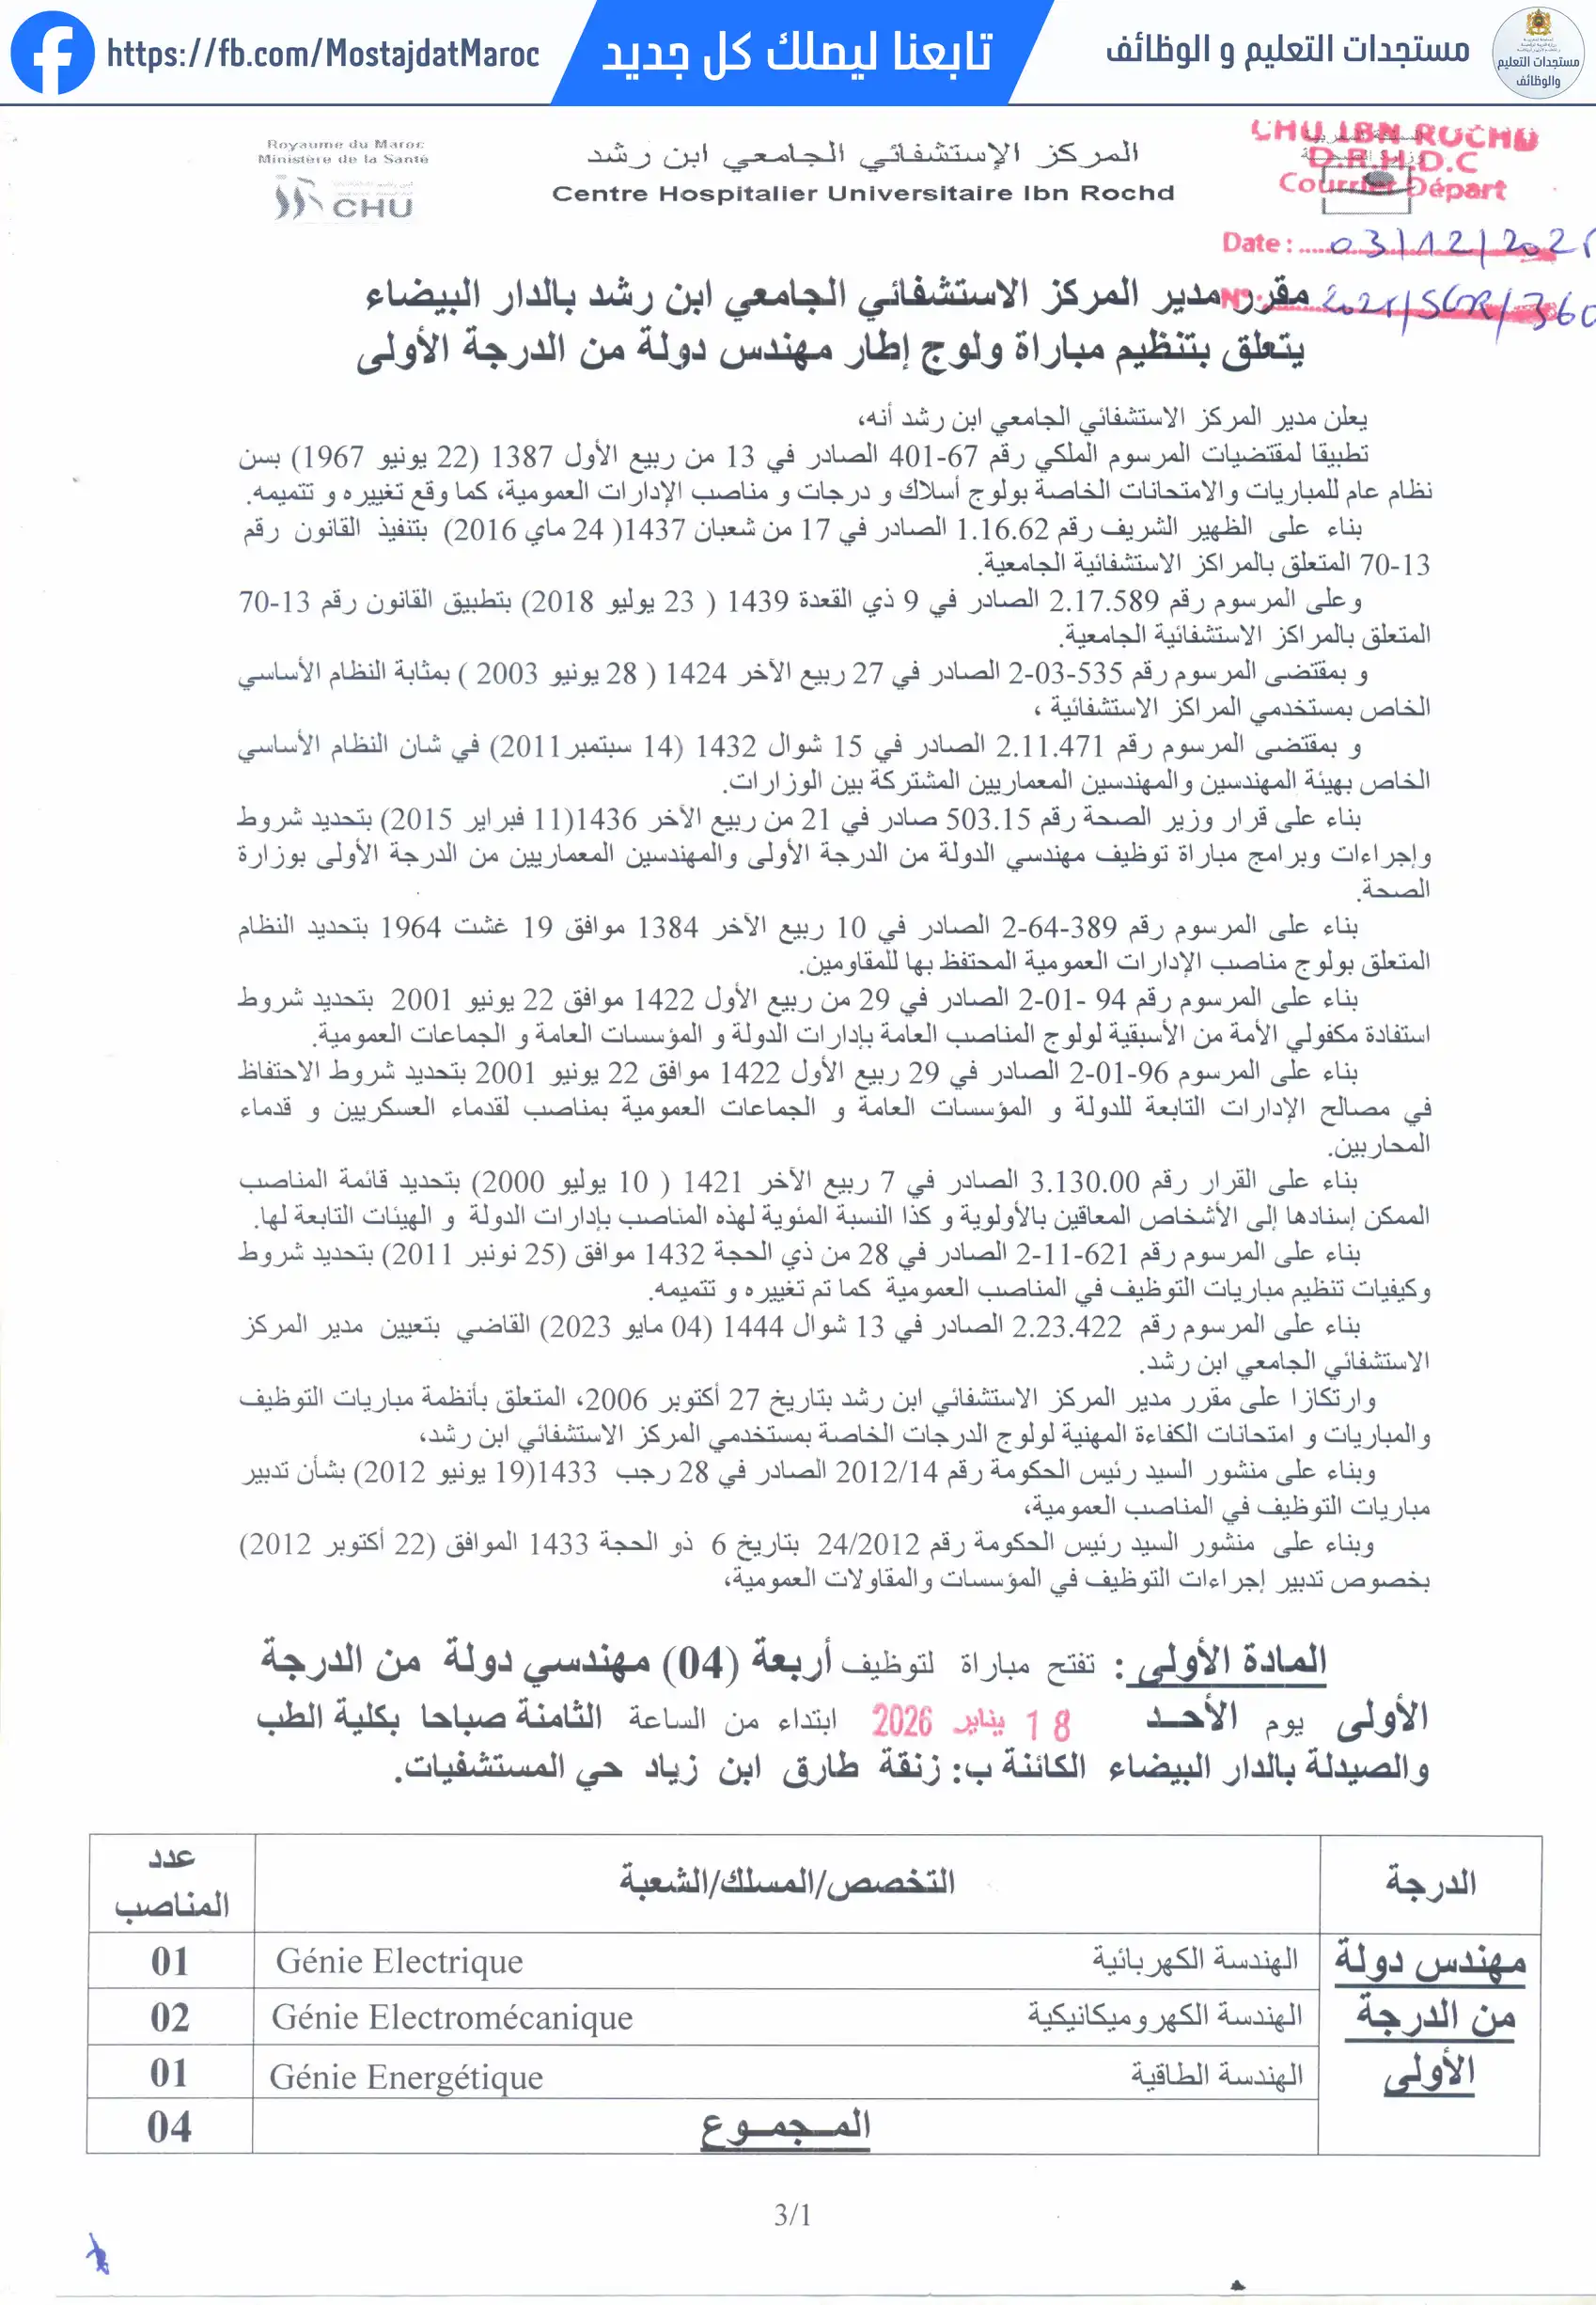 https://fb.com/MostajdatMaroc
تابعنا ليصلك كل جديد
مستجدات التعليم و الوظائف
مستجدات التعليم
والوظائف
Royaume du Maroc
Ministère de la Santé
CHU
المركز الإستشفائي الجامعي ابن رشد
Centre Hospitalier Universitaire Ibn Rochd
CHU IBN ROCHD
D.R.H.D.C
Courrier Départ
Date : 03/12/2025
مقرر مدير المركز الاستشفائي الجامعي ابن رشد بالدار البيضاء
يتعلق بتنظيم مباراة ولوج إطار مهندس دولة من الدرجة الأولى
يعلن مدير المركز الاستشفائي الجامعي ابن رشد أنه،
تطبيقا لمقتضيات المرسوم الملكي رقم 67-401 الصادر في 13 من ربيع الأول 1387 (22 يونيو 1967) بسن
نظام عام للمباريات والامتحانات الخاصة بولوج أسلاك و درجات و مناصب الإدارات العمومية، كما وقع تغييره و تتميمه.
بناء على الظهير الشريف رقم 1.16.62 الصادر في 17 من شعبان 1437( 24 ماي 2016) بتنفيذ القانون رقم
70-13 المتعلق بالمراكز الاستشفائية الجامعية.
وعلى المرسوم رقم 2.17.589 الصادر في 9 ذي القعدة 1439 ( 23 يوليو 2018) بتطبيق القانون رقم 13-70
المتعلق بالمراكز الاستشفائية الجامعية.
و بمقتضى المرسوم رقم 535-03-2 الصادر في 27 ربيع الآخر 1424 ( 28 يونيو 2003 ) بمثابة النظام الأساسي
الخاص بمستخدمي المراكز الاستشفائية ،
و بمقتضى المرسوم رقم 2.11.471 الصادر في 15 شوال 1432 (14 سبتمبر2011) في شان النظام الأساسي
الخاص بهيئة المهندسين والمهندسين المعماريين المشتركة بين الوزارات.
بناء على قرار وزير الصحة رقم 503.15 صادر في 21 من ربيع الآخر 1436(11 فبراير 2015) بتحديد شروط
وإجراءات وبرامج مباراة توظيف مهندسي الدولة من الدرجة الأولى والمهندسين المعماريين من الدرجة الأولى بوزارة
الصحة.
بناء على المرسوم رقم 389-64-2 الصادر في 10 ربيع الآخر 1384 موافق 19 غشت 1964 بتحديد النظام
المتعلق بولوج مناصب الإدارات العمومية المحتفظ بها للمقاومين.
بناء على المرسوم رقم 94 -01-2 الصادر في 29 من ربيع الأول 1422 موافق 22 يونيو 2001 بتحديد شروط
استفادة مكفولي الأمة من الأسبقية لولوج المناصب العامة بإدارات الدولة و المؤسسات العامة و الجماعات العمومية.
بناء على المرسوم 96-01-2 الصادر في 29 ربيع الأول 1422 موافق 22 يونيو 2001 بتحديد شروط الاحتفاظ
في مصالح الإدارات التابعة للدولة و المؤسسات العامة و الجماعات العمومية بمناصب لقدماء العسكريين و قدماء
المحاربين.
بناء على القرار رقم 3.130.00 الصادر في 7 ربيع الآخر 1421 ( 10 يوليو 2000) بتحديد قائمة المناصب
الممكن إسنادها إلى الأشخاص المعاقين بالأولوية و كذا النسبة المئوية لهذه المناصب بإدارات الدولة و الهيئات التابعة لها.
بناء على المرسوم رقم 621-11-2 الصادر في 28 من ذي الحجة 1432 موافق (25 نونبر 2011) بتحديد شروط
وكيفيات تنظيم مباريات التوظيف في المناصب العمومية كما تم تغييره و تتميمه.
بناء على المرسوم رقم 2.23.422 الصادر في 13 شوال 1444 (04 مايو 2023) القاضي بتعيين مدير المركز
الاستشفائي الجامعي ابن رشد.
وارتكازا على مقرر مدير المركز الاستشفائي ابن رشد بتاريخ 27 أكتوبر 2006، المتعلق بأنظمة مباريات التوظيف
والمباريات و امتحانات الكفاءة المهنية لولوج الدرجات الخاصة بمستخدمي المركز الاستشفائي ابن رشد،
وبناء على منشور السيد رئيس الحكومة رقم 2012/14 الصادر في 28 رجب 1433(19 يونيو 2012) بشأن تدبير
مباريات التوظيف في المناصب العمومية،
وبناء على منشور السيد رئيس الحكومة رقم 24/2012 بتاريخ 6 ذو الحجة 1433 الموافق (22 أكتوبر 2012)
بخصوص تدبير إجراءات التوظيف في المؤسسات والمقاولات العمومية،
المادة الأولى : تفتح مباراة لتوظيف أربعة (04) مهندسي دولة من الدرجة
الأولى يوم الأحد 18 يناير 2026 ابتداء من الساعة الثامنة صباحا بكلية الطب
والصيدلة بالدار البيضاء الكائنة ب: زنقة طارق ابن زياد حي المستشفيات.
الدرجة التخصص/المسلك/الشعبة عدد المناصب
مهندس دولة من الدرجة الأولى
الهندسة الكهربائية Génie Electrique 01
الهندسة الكهروميكانيكية Génie Electromécanique 02
الهندسة الطاقية Génie Energétique 01
المجموع 04
3/1